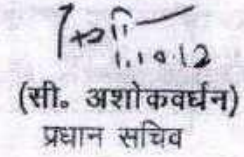 1.10.12
(सी० अशोकवर्धन)
प्रधान सचिव